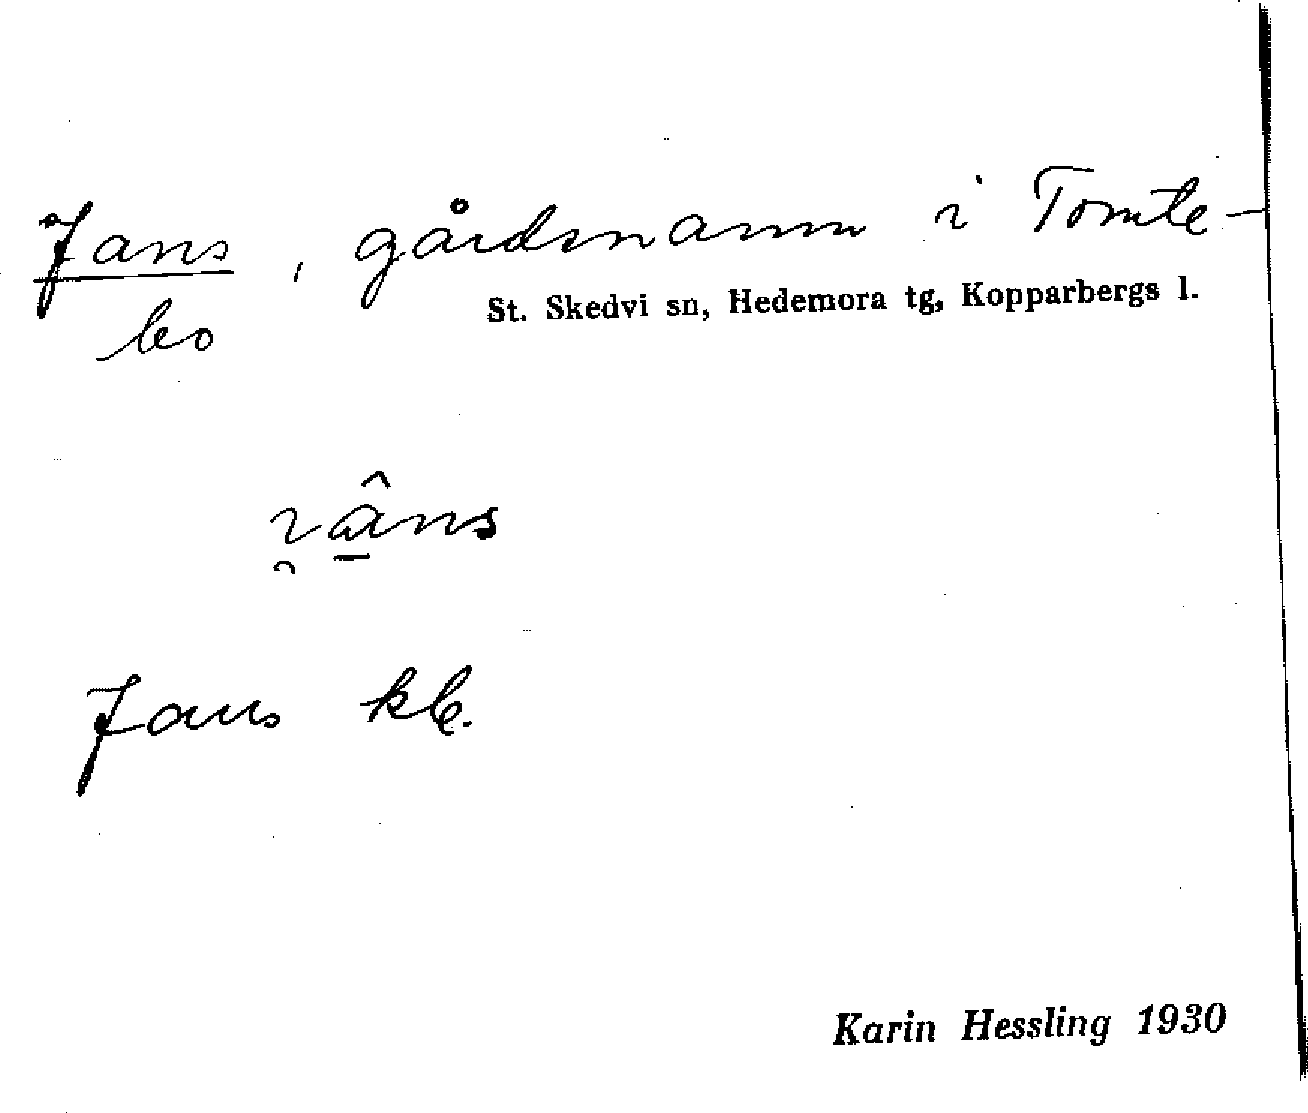 Jans, gårdsnamn i Tomte-
St. Skedvi sn, Hedemora tg, Kopparbergs l.
bo
i̯â̱ns
Jans kb.
Karin Hessling 1930